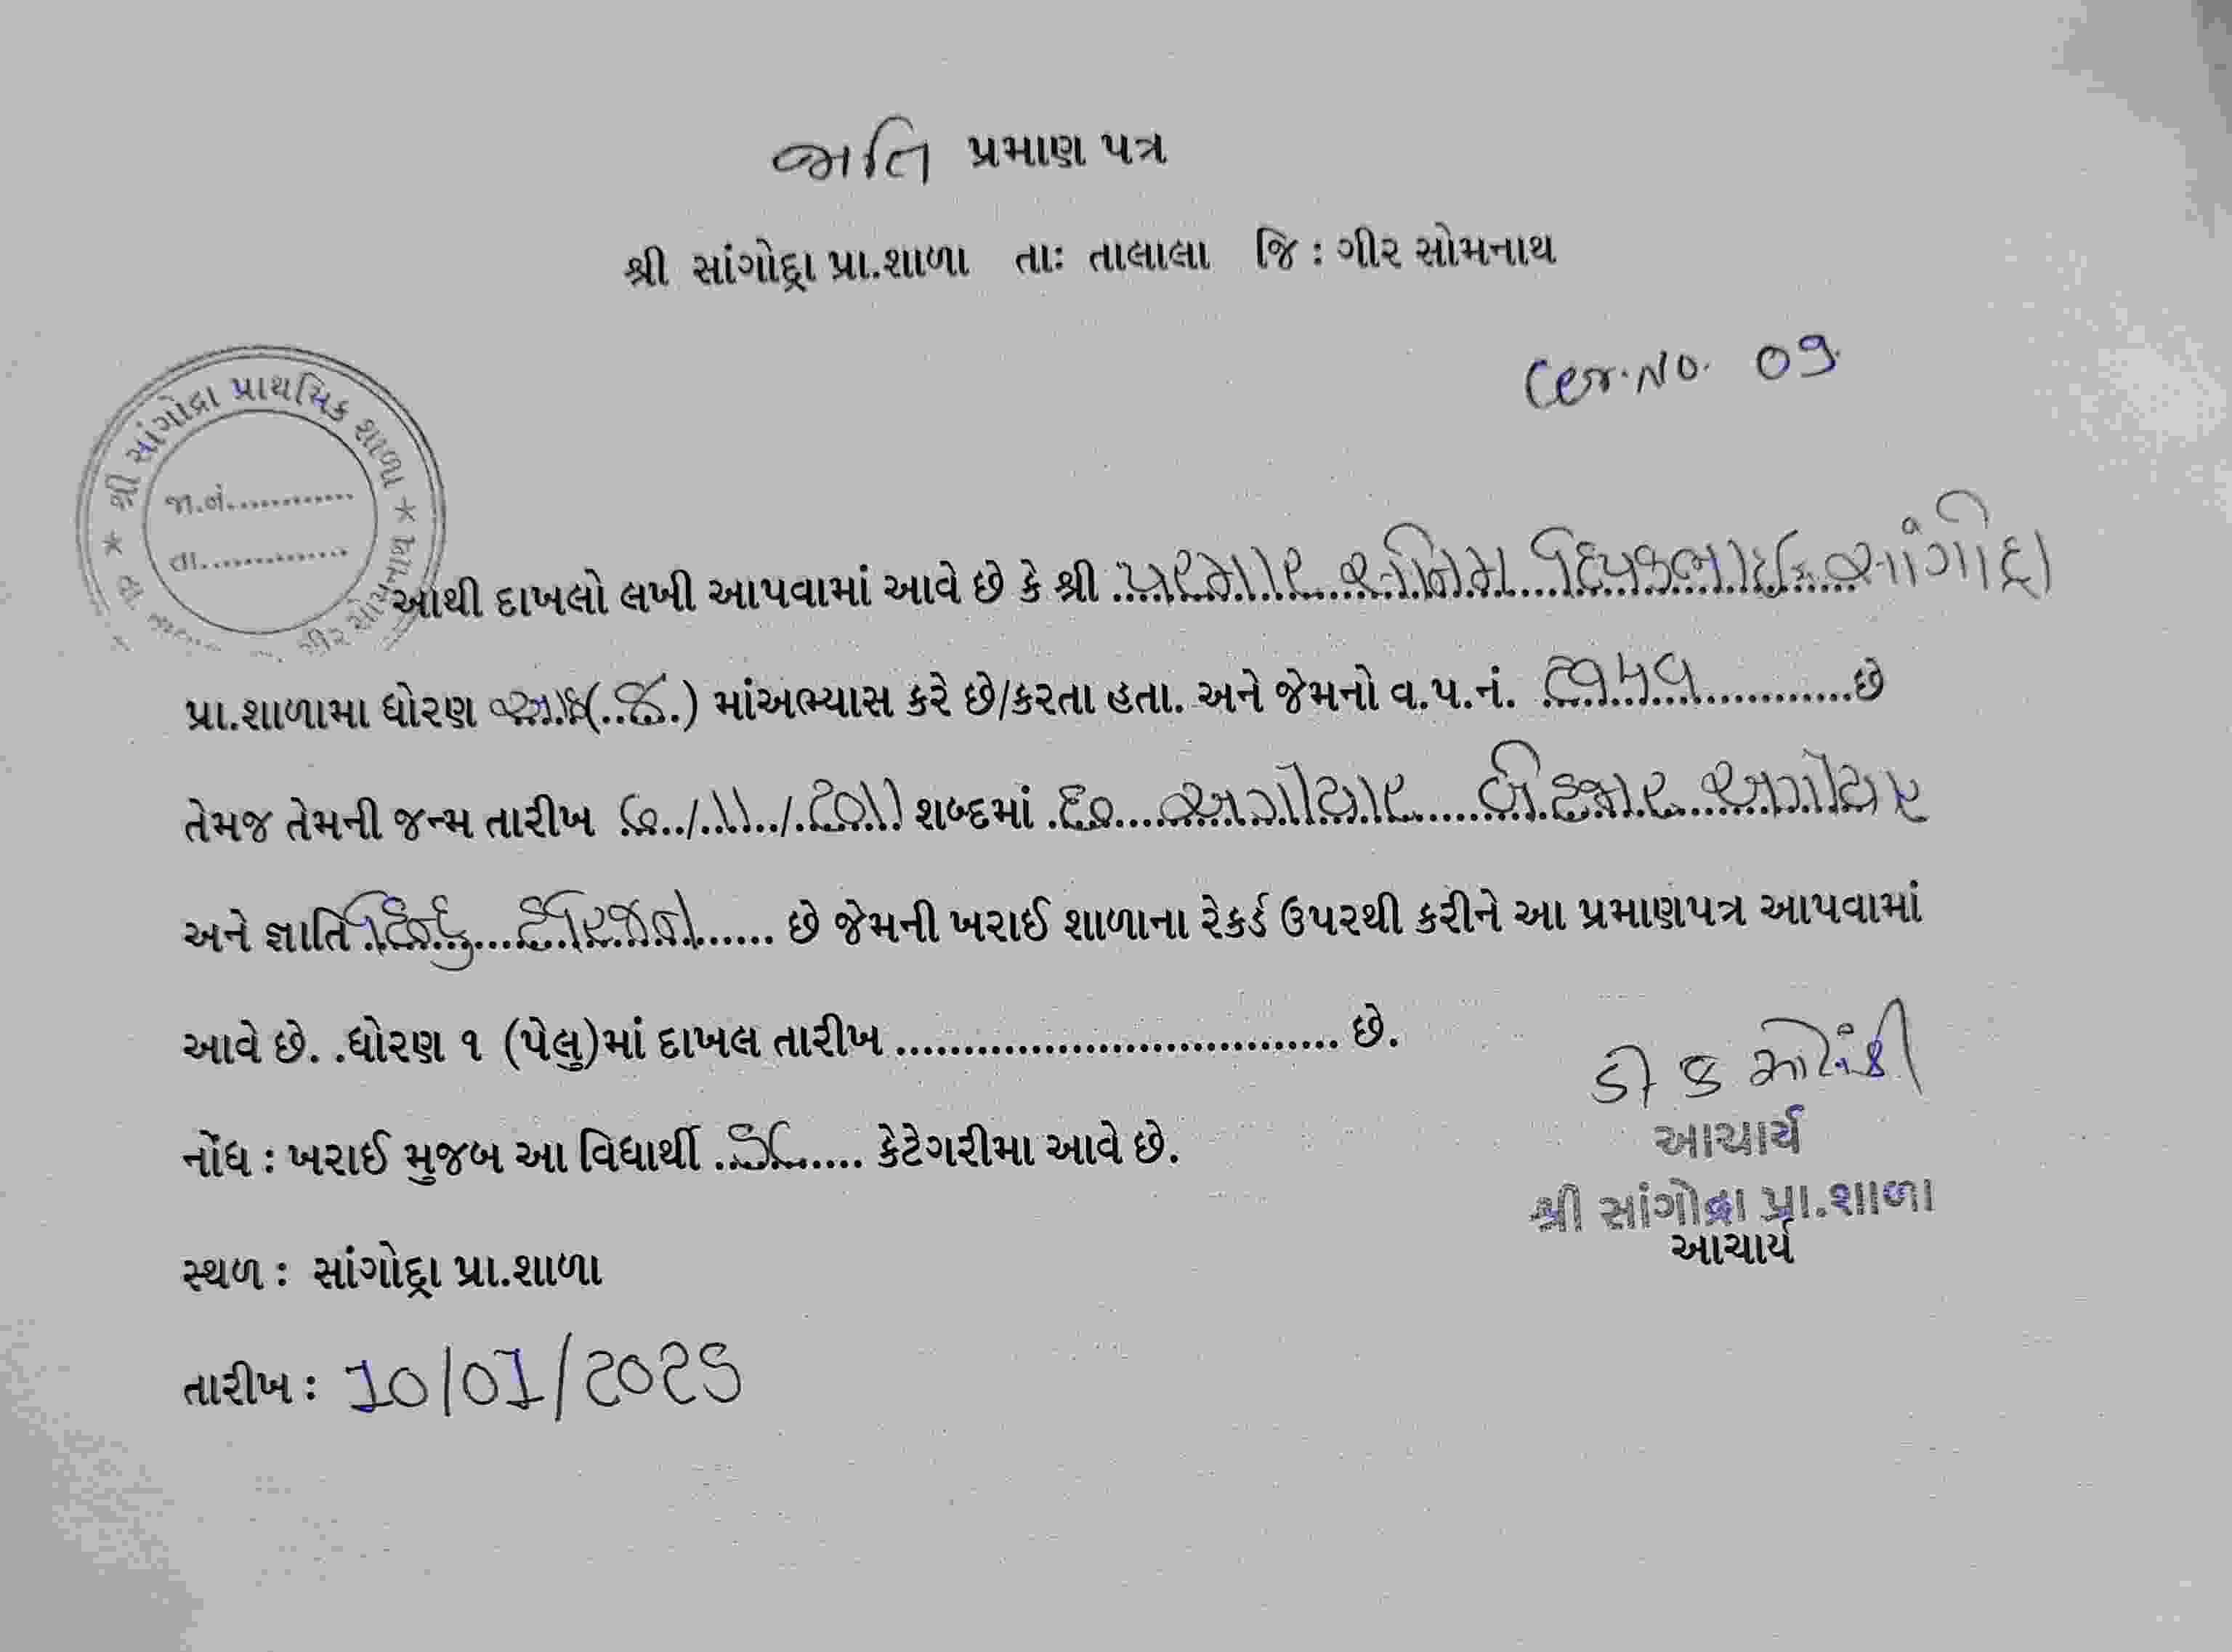 જાતિ પ્રમાણ પત્ર
શ્રી સાંગોદ્રા પ્રા.શાળા તાઃ તાલાલા જિ : ગીર સોમનાથ
Cer.No. 09.
શ્રી સાંગોદ્રા પ્રાથમિક શાળા
જા.નં............
તા.............
ગીર સોમનાથ
આથી દાખલો લખી આપવામાં આવે છે કે શ્રી પરમાર દિપકભાઈ સાંગોદ્રા
પ્રા.શાળામા ધોરણ (..૭.) માંઅભ્યાસ કરે છે/કરતા હતા. અને જેમનો વ.પ.નં. ૨૧૫૧ છે
તેમજ તેમની જન્મ તારીખ /11/2011 શબ્દમાં અગીયાર બે હજાર અગીયાર
અને જ્ઞાતિ હિન્દુ હરિજન છે જેમની ખરાઈ શાળાના રેકર્ડ ઉપરથી કરીને આ પ્રમાણપત્ર આપવામાં
આવે છે. .ધોરણ ૧ (પેલુ)માં દાખલ તારીખ ................................. છે.
નોંધ : ખરાઈ મુજબ આ વિધાર્થી SC કેટેગરીમા આવે છે.
આચાર્ય
શ્રી સાંગોદ્રા પ્રા.શાળા
આચાર્ય
સ્થળ : સાંગોદ્રા પ્રા.શાળા
તારીખ : 10/01/2025